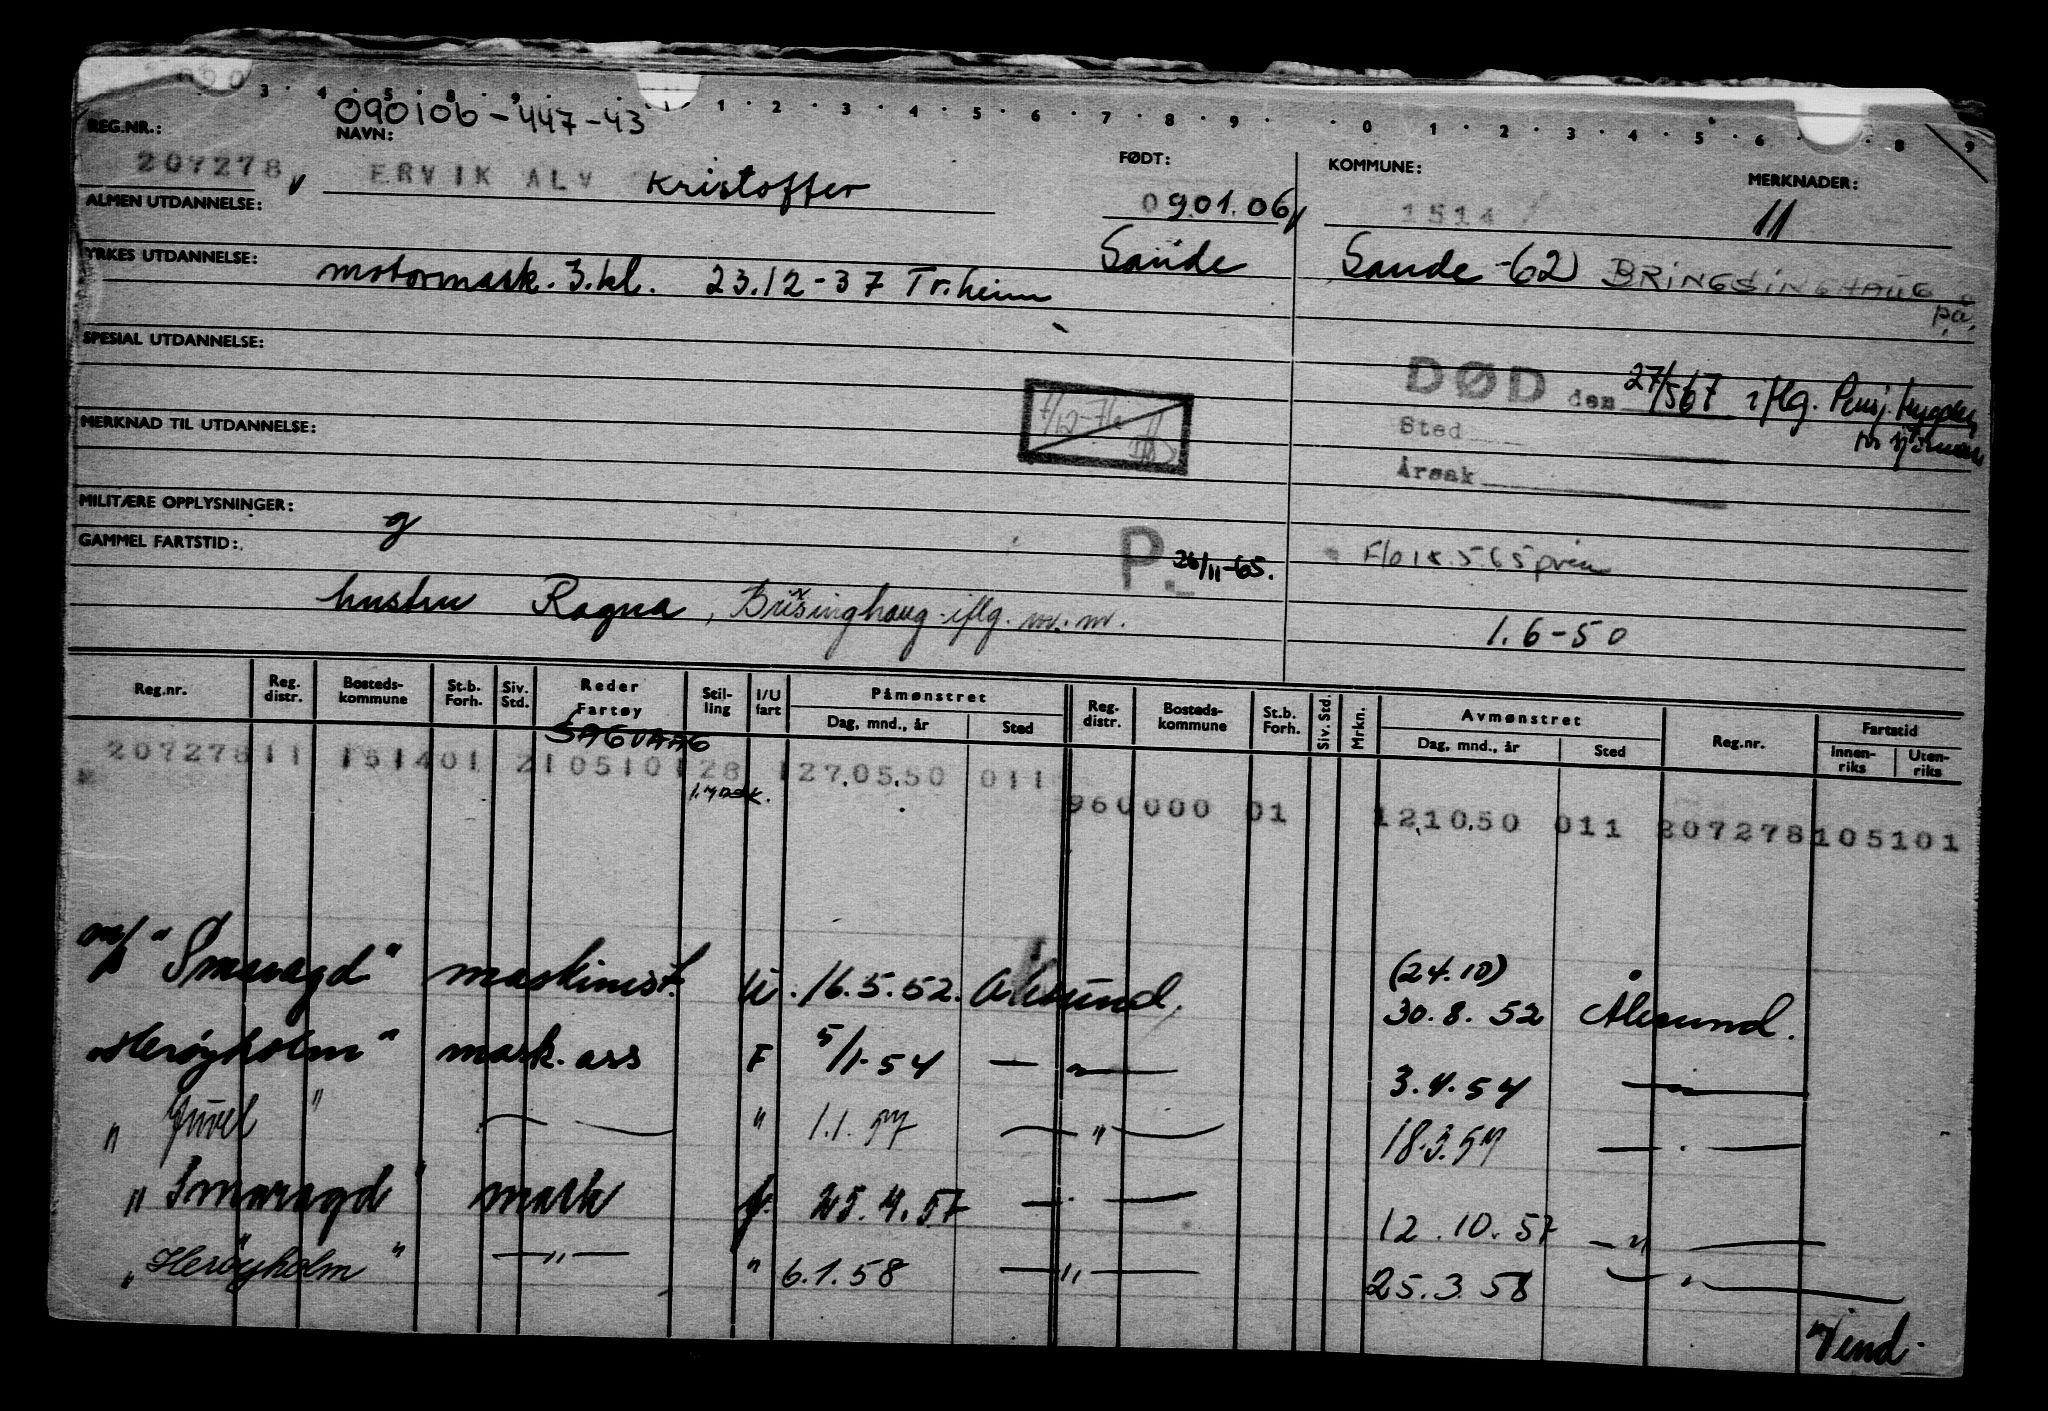 3 · 4 · 5 · 8 · 9 · 1 · 2 · 3 · 4 · 5 · 6 · 7 · 8 · 9 · 0 · 1 · 2 · 3 · 4 · 5 · 6 · 8 · 9
090106-447-43
REG.NR.: NAVN: FØDT: KOMMUNE: MERKNADER:
207278 v ERVIK ALV Kristoffer 09.01.06 1514 11
ALMEN UTDANNELSE: Sande Sande -62 BRINGSINGHAUG
på.
YRKES UTDANNELSE: motormask. 3.kl. 23.12-37 Tr.heim
SPESIAL UTDANNELSE:
DØD den 27/5 67 iflg. Pensj. trygden
for sjømenn
Sted
Årsak
MERKNAD TIL UTDANNELSE:
MILITÆRE OPPLYSNINGER: g
GAMMEL FARTSTID:
P. 26/11-65.
hustru Ragna, Brisinghaug iflg. m.m.
1.6-50
Reg.nr. Reg. distr. Bosteds-kommune St.b. Forh. Siv. Std. Reder Fartøy Stil-ling I/U fart Påmønstret Dag, mnd., år Sted Reg. distr. Bosteds-kommune St.b. Forh. Siv. Std. Mrkn. Avmønstret Dag, mnd., år Sted Reg.nr. Fartstid Innen-riks Uten-riks
SAGVAAG
207278 11 1514 01 2 105101 28 1 27.05.50 011
1.mask.
960000 01 12.10.50 011 207278 105101
m/s "Smaragd" maskinist. U. 16.5.52. Ålesund. (24.10)
30.8.52 Ålesund.
"Herøyholm" mask. ass F 5/1-54 — " — 3.4.54 — " —
" Juvel " — " — " 1.1.57 — " — 18.3.57 — " —
" Smaragd " mask f. 25.4.57 — " — 12.10.57 — " —
" Herøyholm " — " — " 6.1.58 — " — 25.3.58 — " —
Vend.